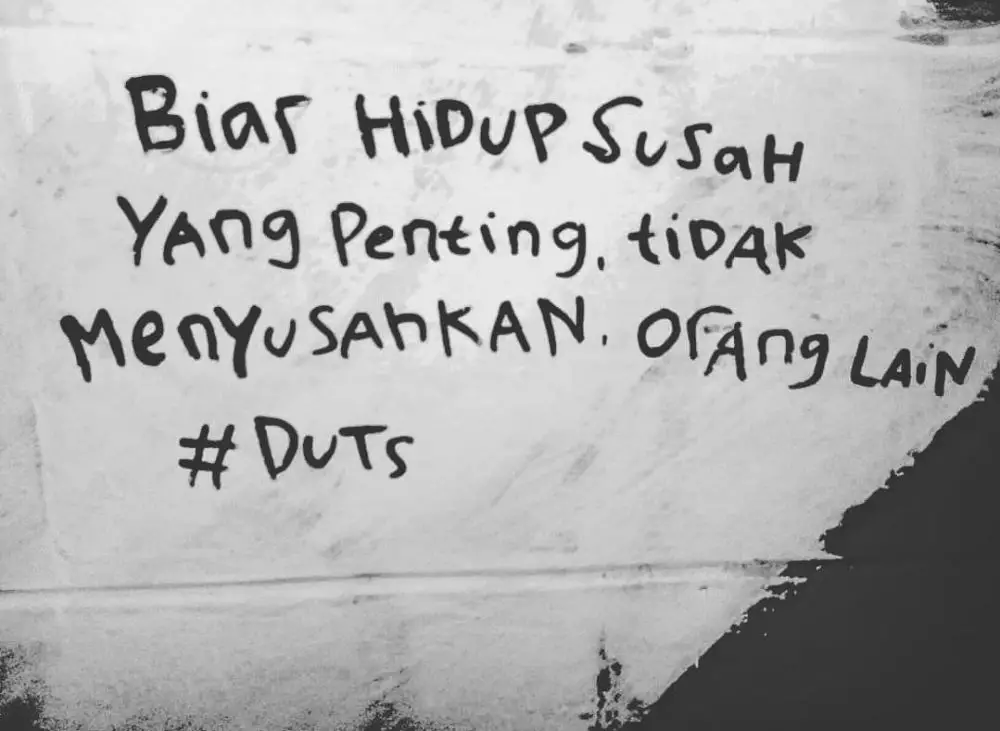 Biar HiDUP SUSaH
YAng Penting, tiDAK
MenyUSAhKAN. OrAng LAiN
# DUTS